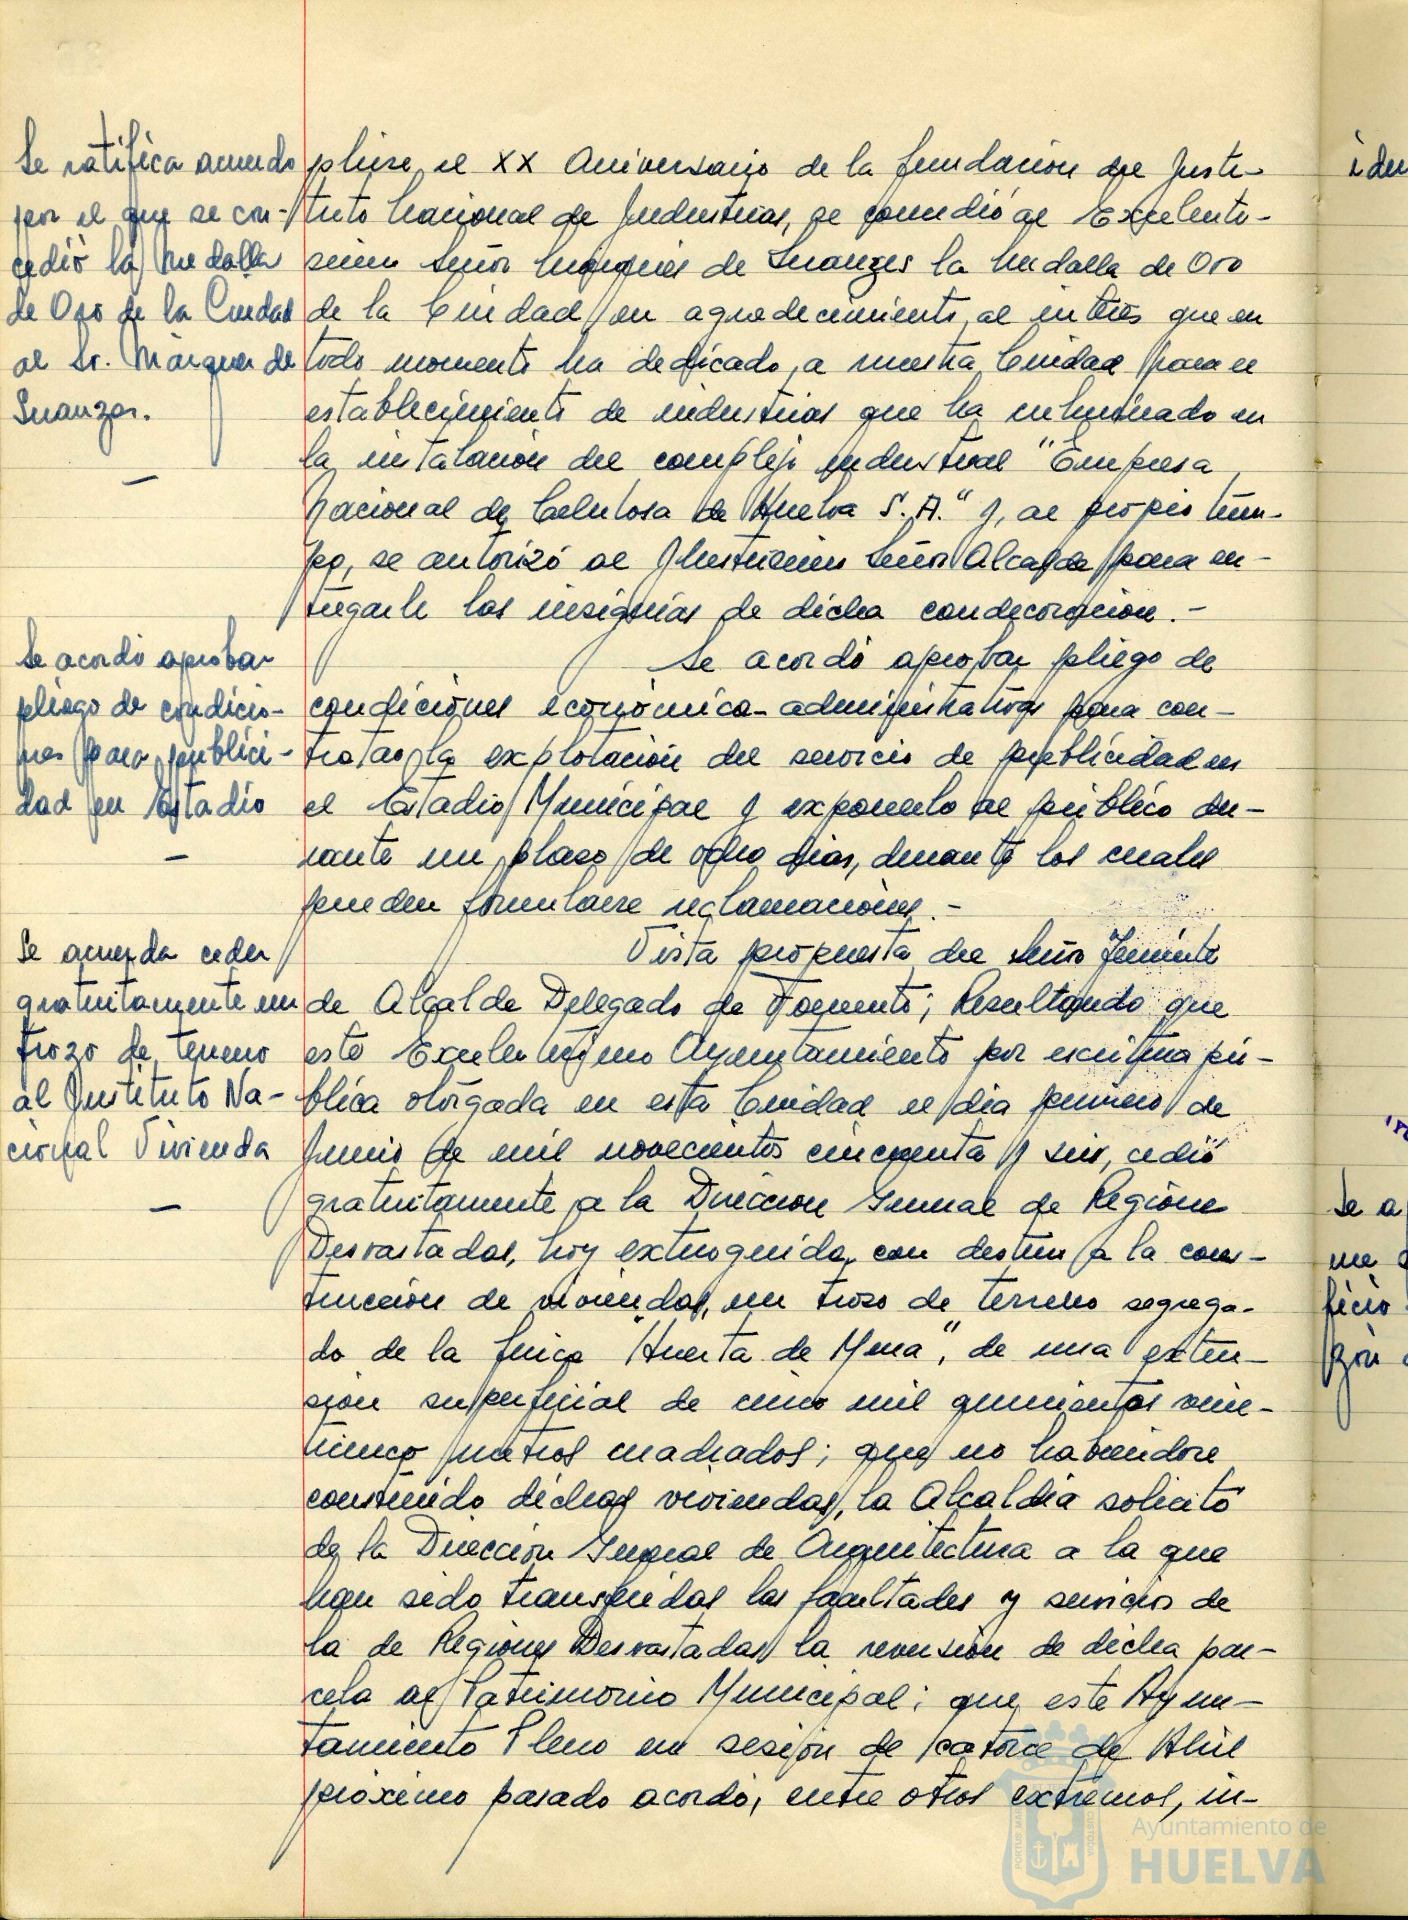 Se ratifica acuerdo
por el que se con-
cedió la Medalla
de Oro de la Ciudad
al Sr. Marques de
Suanzes.
plirse el XX Aniversario de la fundación del Insti-
tuto Nacional de Industrias, se concedió al Excelentí-
simo Señor Marqués de Suanzes la Medalla de Oro
de la Ciudad en agradecimiento al interés que en
todo momento ha dedicado a nuestra Ciudad para el
establecimiento de industrias que ha culminado en
la instalación del complejo industrial "Empresa
Nacional de Celulosa de Huelva S.A." y, al propio tiem-
po, se autorizó al Ilustrísimo Señor Alcalde para en-
tregarle las insignias de dicha condecoración.-
Se acordó aprobar
pliego de condicio-
nes para publici-
dad en Estadio
Se acordó aprobar pliego de
condiciones económico-administrativas para con-
tratar la explotación del servicio de publicidad en
el Estadio Municipal y exponerlo al público du-
rante un plazo de ocho dias, durante los cuales
pueden formularse reclamaciones.-
Se acuerda ceder
gratuitamente un
trozo de terreno
al Instituto Na-
cional Vivienda
Vista propuesta del Señor Teniente
de Alcalde Delegado de Fomento; Resultando que
este Excelentísimo Ayuntamiento por escritura pú-
blica otorgada en esta Ciudad el dia primero de
Junio de mil novecientos cincuenta y seis, cedió
gratuitamente a la Dirección General de Regiones
Desvastadas, hoy extinguida, con destino a la cons-
trucción de viviendas, un trozo de terreno segrega-
do de la finca "Huerta de Mena", de una exten-
sión superficial de cinco mil quinientos vein-
ticinco metros cuadrados; que no habiendose
construido dichas viviendas, la Alcaldía solicitó
de la Dirección General de Arquitectura a la que
han sido transferidas las facultades y servicios de
la de Regiones Desvastadas la reversión de dicha par-
cela al Patrimonio Municipal; que este Ayun-
tamiento Pleno en sesión de catorce de Abril
próximo pasado acordó, entre otros extremos, in-
Ayuntamiento de
HUELVA